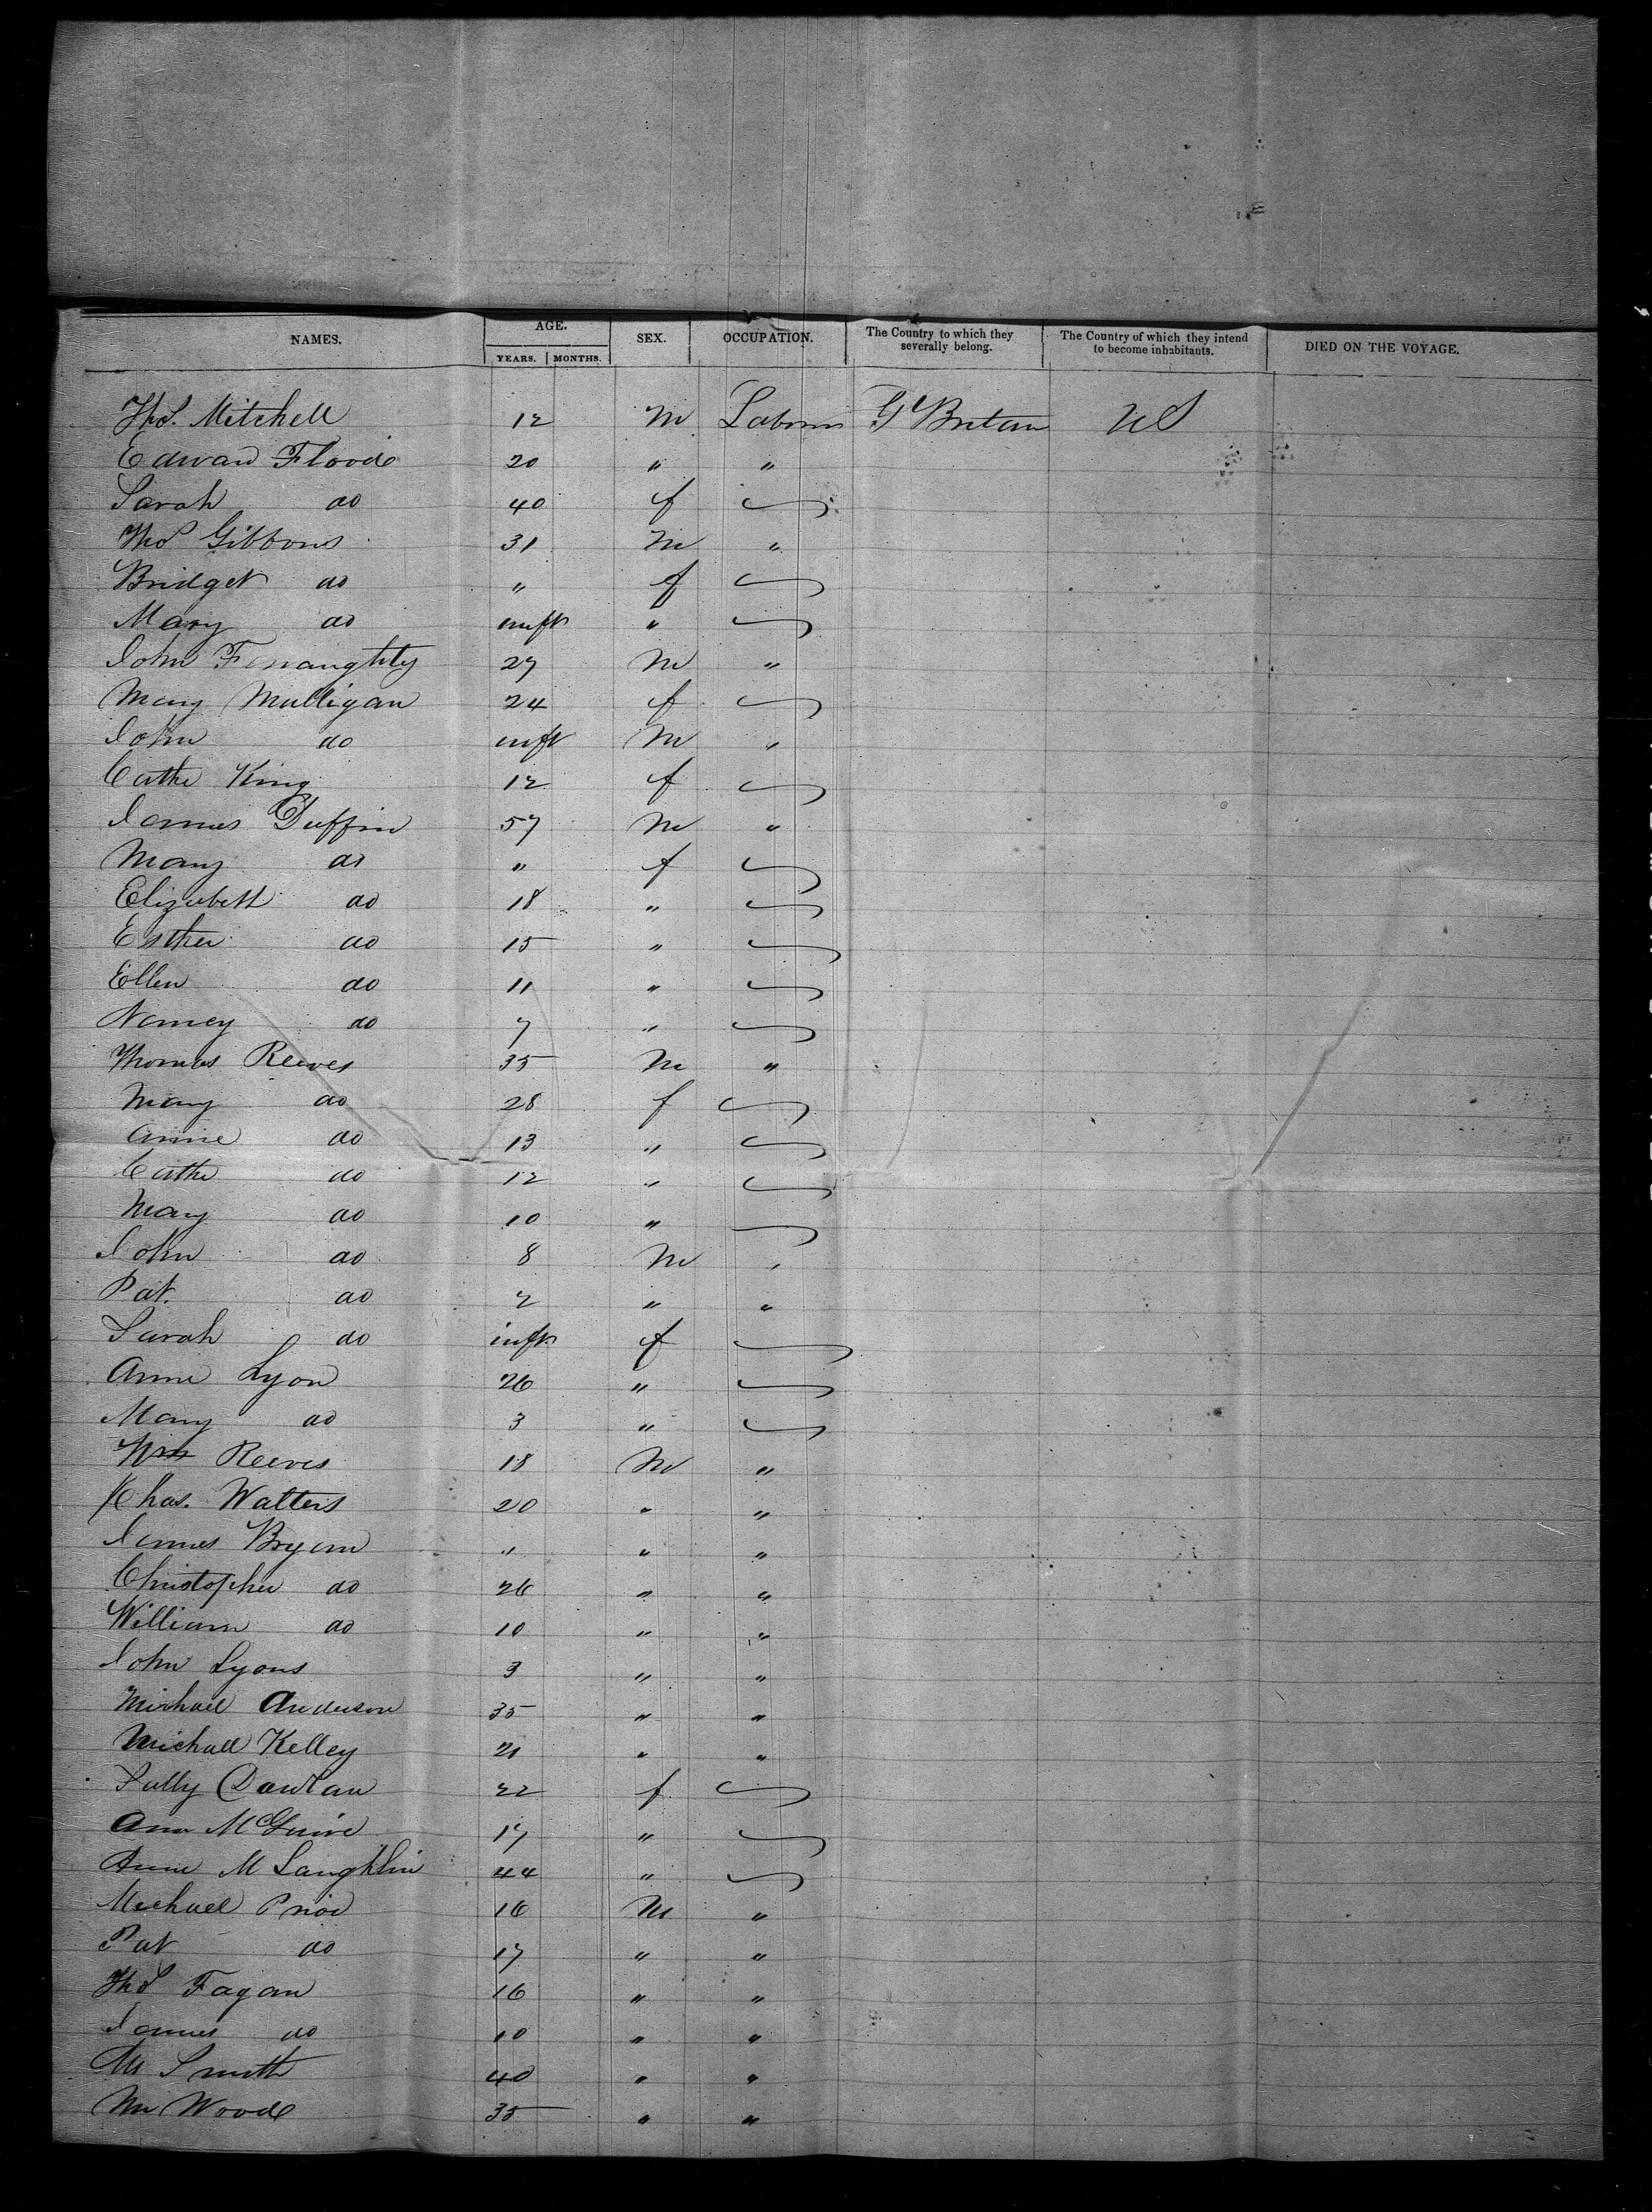 NAMES. AGE. SEX. OCCUPATION. The Country to which they severally belong. The Country of which they intend to become inhabitants. DIED ON THE VOYAGE.
YEARS. MONTHS.
Thos. Mitchell 12 M Laborer Gt Britain US
Edward Floode 20 " "
Sarah do 40 f
Thos Gibbons 31 M "
Bridget do " f
Mary do inft "
John Fenaughty 27 M "
Mary Mulligan 24 f
John do inft M "
Cathe King 12 f
James Duffin 57 M "
Mary do " f
Elizabeth do 18 "
Esther do 15 "
Ellen do 11 "
Nancy do 7 "
Thomas Reeves 35 M "
Mary do 28 f
Annie do 13 "
Cathe do 12 "
Mary do 10 "
John do 8 M "
Pat. do 2 " "
Sarah do inft f
Anne Lyon 26 "
Mary do 3 "
Wm Reeves 18 M "
Chas. Walters 20 " "
James Bryan " " "
Christopher do 26 " "
William do 10 " "
John Lyons 3 " "
Michael Anderson 35 " "
Michael Kelley 21 " "
Sally 22 f
Ann McGuire 17 "
Anne M Laughlin 44 "
Michael Prior 16 M "
Pat do 17 " "
Thos Fagan 16 " "
James do 10 " "
Mr Smith 40 " "
Mr Woods 35 " "